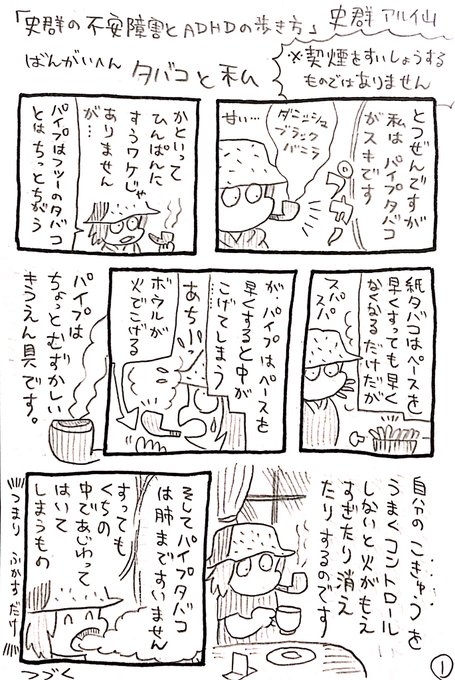 「史群の不安障害とADHDの歩き方」
史群アル仙
ばんがいへん
タバコと私
※喫煙をすいしょうする
ものではありません
とつぜんですが
私はパイプタバコ
がスキです
プカ〜
ダニッシュ
ブラック
バニラ
甘い…
かといって
ひんぱんに
すうワケじゃ
ありません
が…
パイプはフツーのタバコ
とはちょっとちがう
紙タバコはペースを
早くすっても早く
なくなるだけだが
スパ
スパ
が、パイプはペースを
早くすると中が
こげてしまう
あちいっ
ボウルが
火でこげる
パイプは
ちょっとむずかしい
きつえん具です。
自分のこきゅうを
うまくコントロール
しないと火がもえ
すぎたり消え
たりするのです
そしてパイプタバコ
は肺まですいません
すっても
くちの
中であじわって
はいて
しまうもの
つまり ふかすだけ
つづく
1